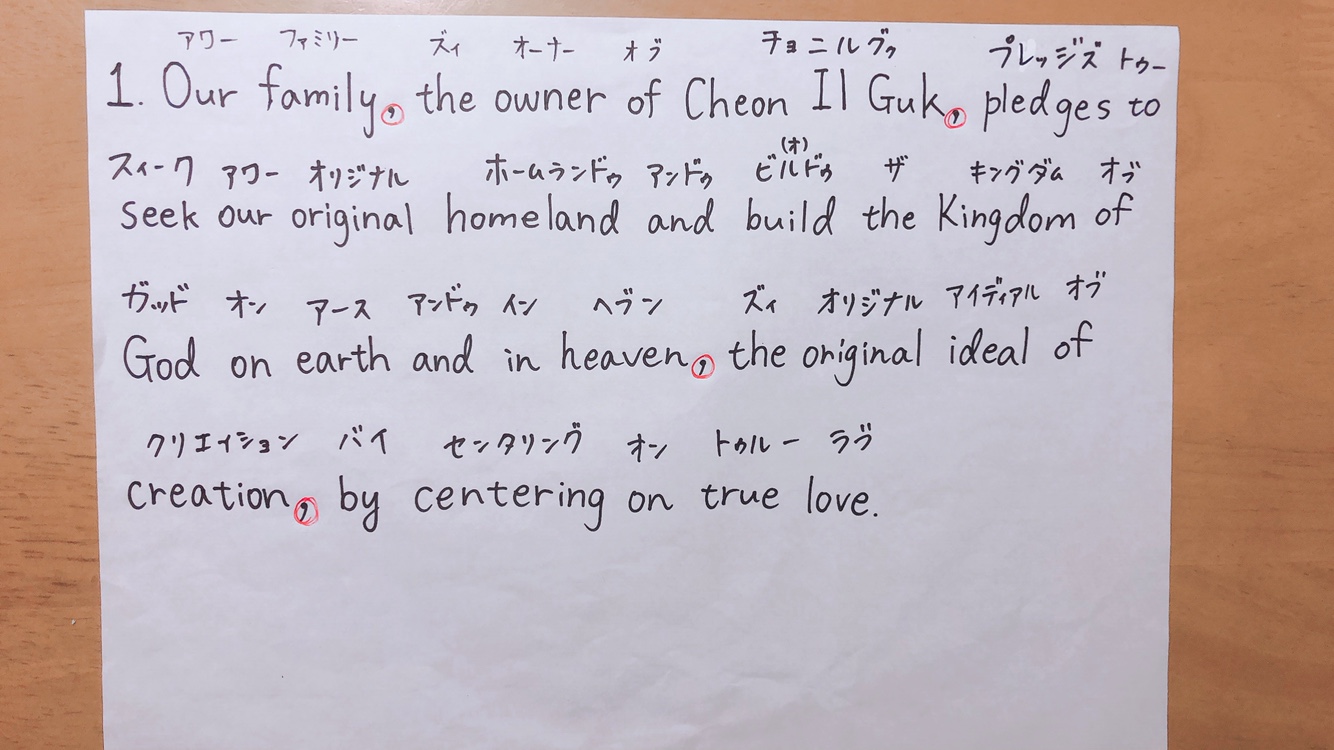 アワー ファミリー ズィ オーナー オブ チョニルグゥ プレッジズ トゥー
1. Our family, the owner of Cheon Il Guk, pledges to
スィーク アワー オリジナル ホームランドゥ アンドゥ ビ(オ)ルドゥ ザ キングダム オブ
seek our original homeland and build the Kingdom of
ガッド オン アース アンドゥ イン ヘブン ズィ オリジナル アイディアル オブ
God on earth and in heaven, the original ideal of
クリエイション バイ センタリング オン トゥルー ラブ
creation, by centering on true love.